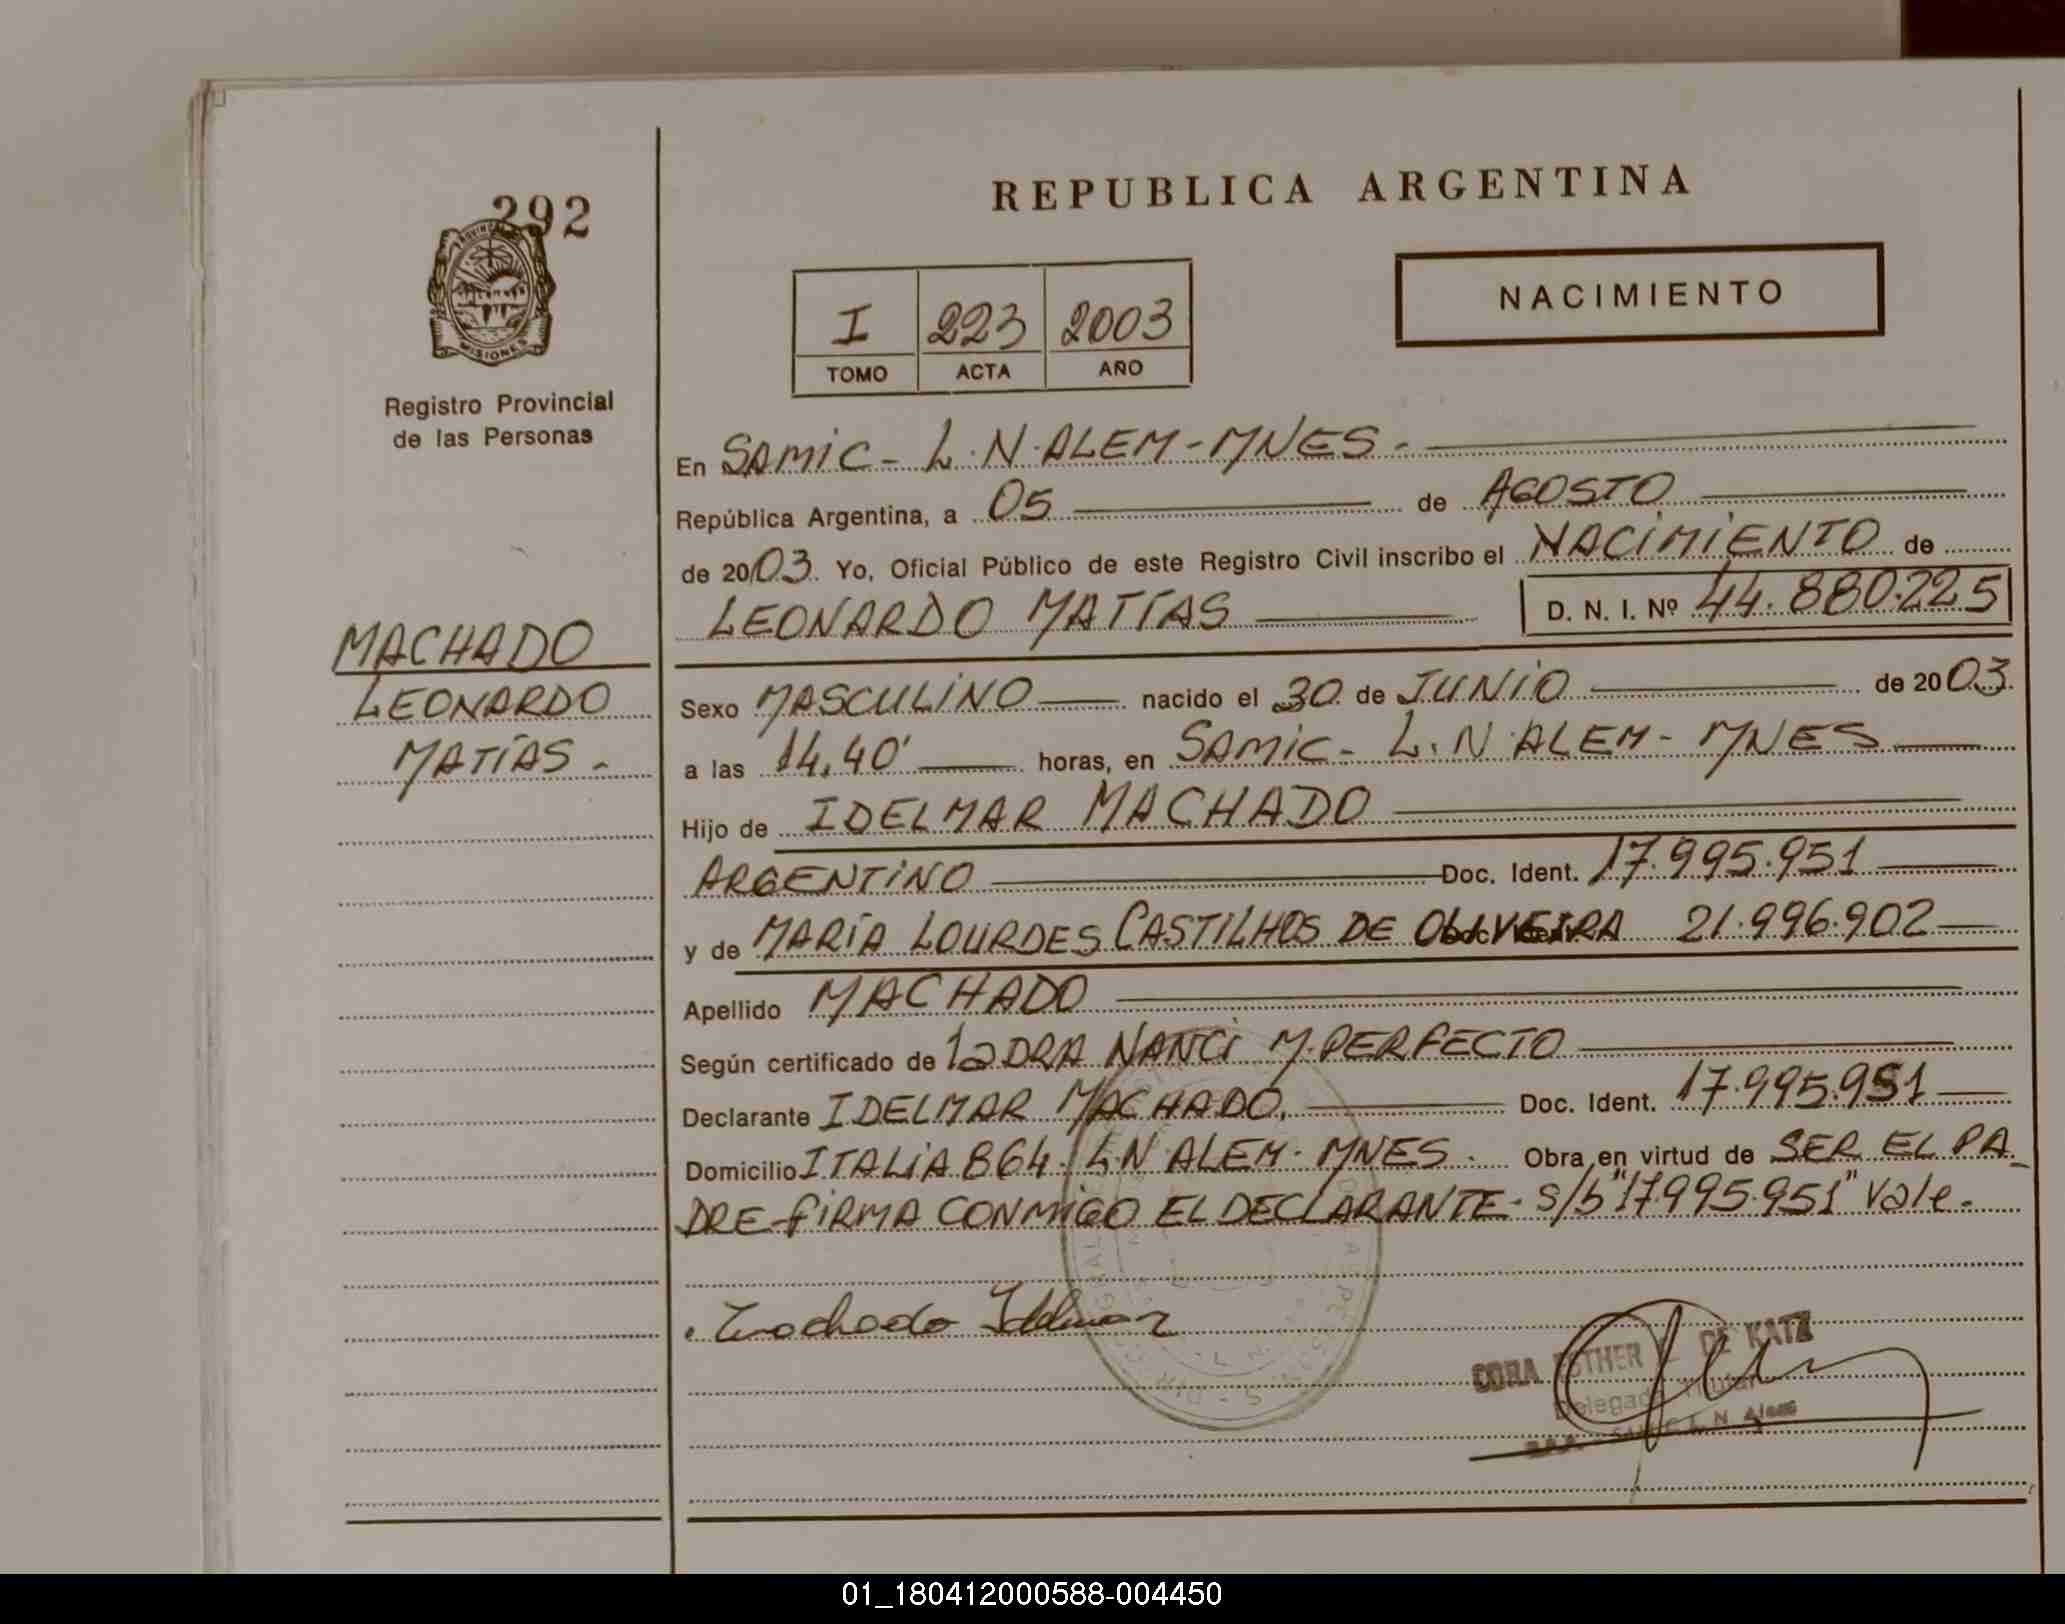 292
PROVINCIA
MISIONES
Registro Provincial
de las Personas
MACHADO
LEONARDO
MATÍAS -
REPUBLICA ARGENTINA
NACIMIENTO
I 223 2003
TOMO ACTA AÑO
En SAMIC - L.N. ALEM - MNES -
República Argentina, a 05 de AGOSTO
de 2003. Yo, Oficial Público de este Registro Civil inscribo el NACIMIENTO de
LEONARDO MATÍAS D. N. I. Nº 44.880.225
Sexo MASCULINO nacido el 30 de JUNIO de 2003.
a las 14,40' horas, en SAMIC - L.N. ALEM - MNES
Hijo de IDELMAR MACHADO
ARGENTINO Doc. Ident. 17.995.951
y de MARÍA LOURDES CASTILHOS DE OLIVEIRA 21.996.902
Apellido MACHADO
Según certificado de la DRA NANCI M. PERFECTO
Declarante IDELMAR MACHADO. Doc. Ident. 17.995.951
Domicilio ITALIA 864. L.N. ALEM - MNES. Obra en virtud de SER EL PA_
DRE - FIRMA CONMIGO EL DECLARANTE - S/b "17.995.951" Vale.
Machado Idelmar
CORA ESTHER DE KATZ
Delegada Titular
L. N. Alem
01_180412000588-004450